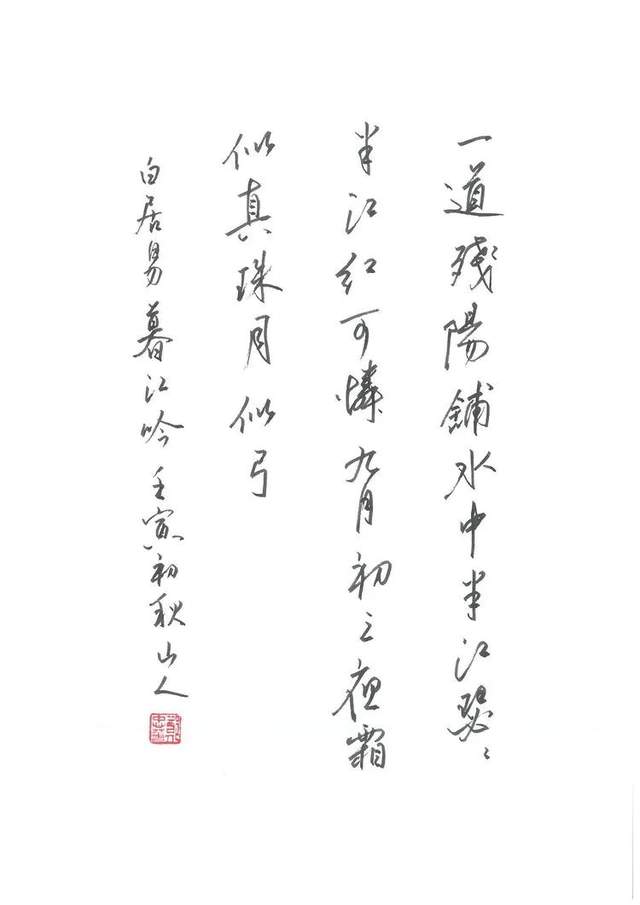 一道殘陽鋪水中半江瑟〻
半江紅可憐九月初三夜霜
似真珠月似弓
白居易暮江吟壬寅初秋山人